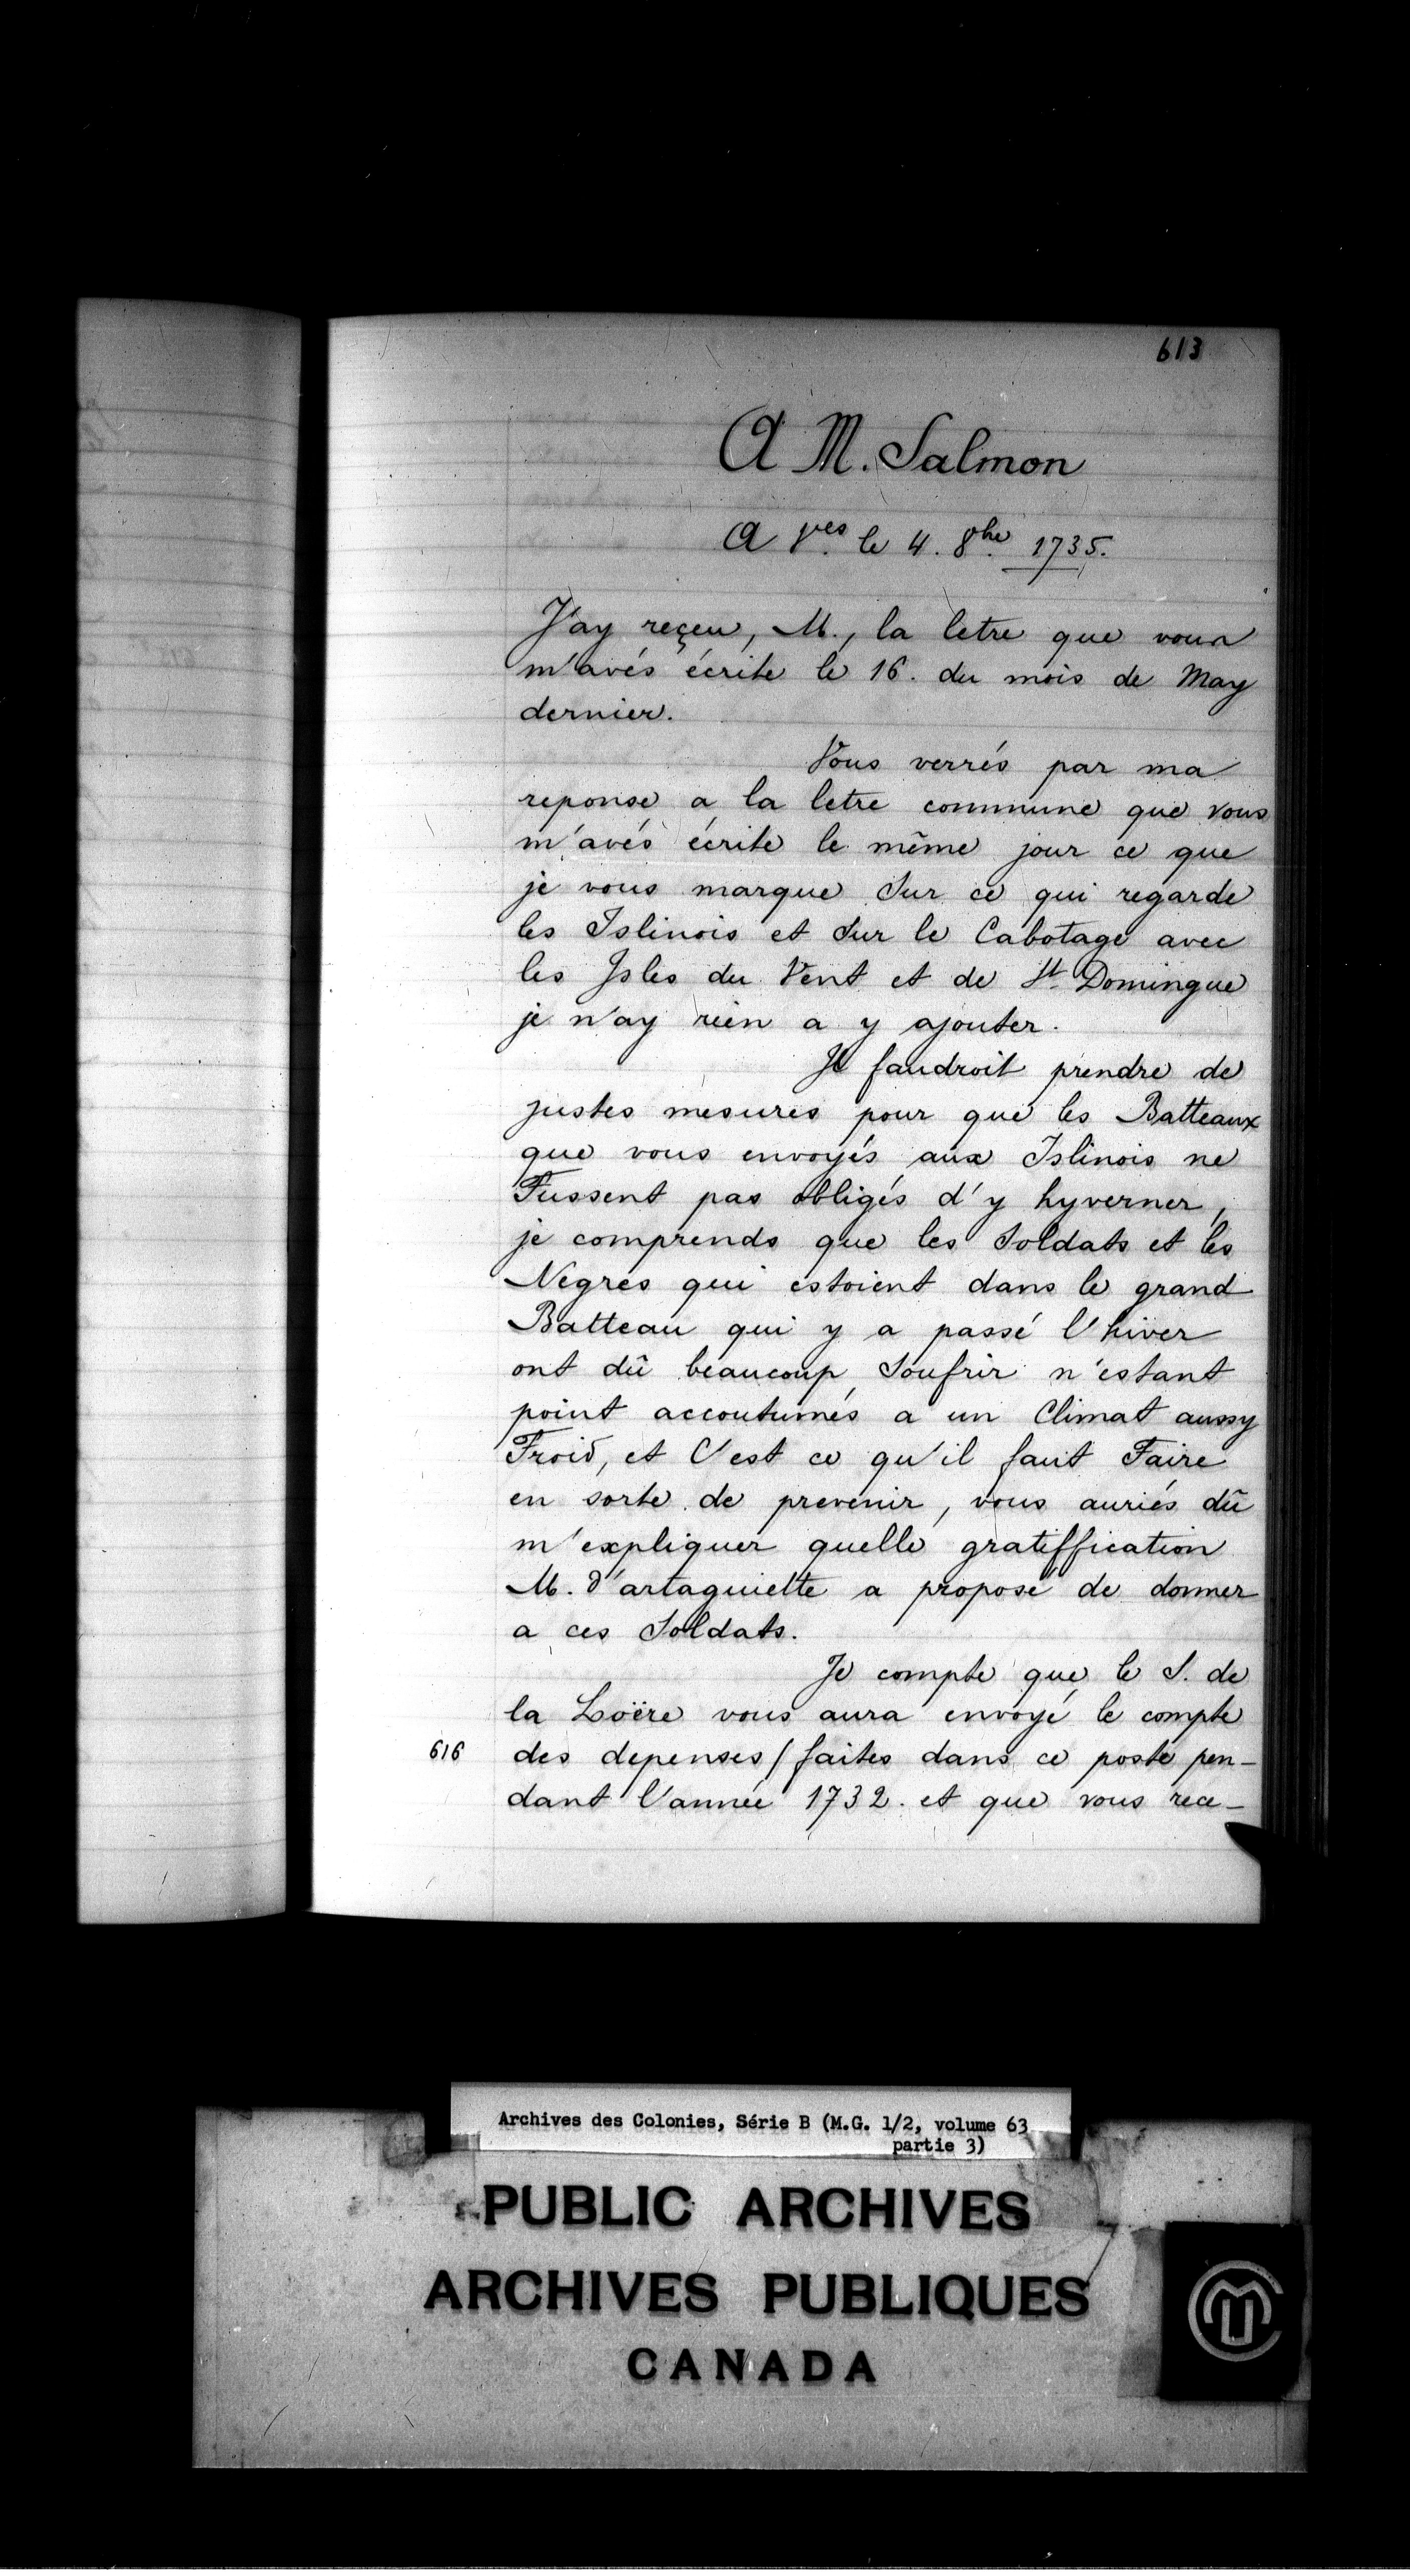 613
A M. Salmon
A Ves le 4. 8bre 1735.
J'ay reçeu, M., la letre que vous
m'avés écrite le 16. du mois de May
dernier.
Vous verrés par ma
reponse a la letre commune que vous
m'avés écrite le même jour ce que
je vous marque Sur ce qui regarde
les Islinois et Sur le Cabotage avec
les Isles du Vent et de St Domingue
je n'ay rien a y ajouter.
Il faudroit prendre de
justes mesures pour que les Batteaux
que vous envoyés aux Islinois ne
Fussent pas obligés d'y hyverner,
je comprends que les Soldats et les
Negres qui estoient dans le grand
Batteau qui y a passé l'hiver
ont dû beaucoup Soufrir n'estant
point accoutumés a un Climat aussy
Froid, et C'est ce qu'il faut Faire
en sorte de prevenir, vous auriés dû
m'expliquer quelle gratiffication
M. d'artaguiette a proposé de donner
a ces Soldats.
Je compte que le S. de
la Loëre vous aura envoyé le compte
616 des depenses / faites dans ce poste pen-
dant l'année 1732. et que vous rece-
Archives des Colonies, Série B (M.G. 1/2, volume 63
partie 3)
PUBLIC ARCHIVES
ARCHIVES PUBLIQUES
CANADA